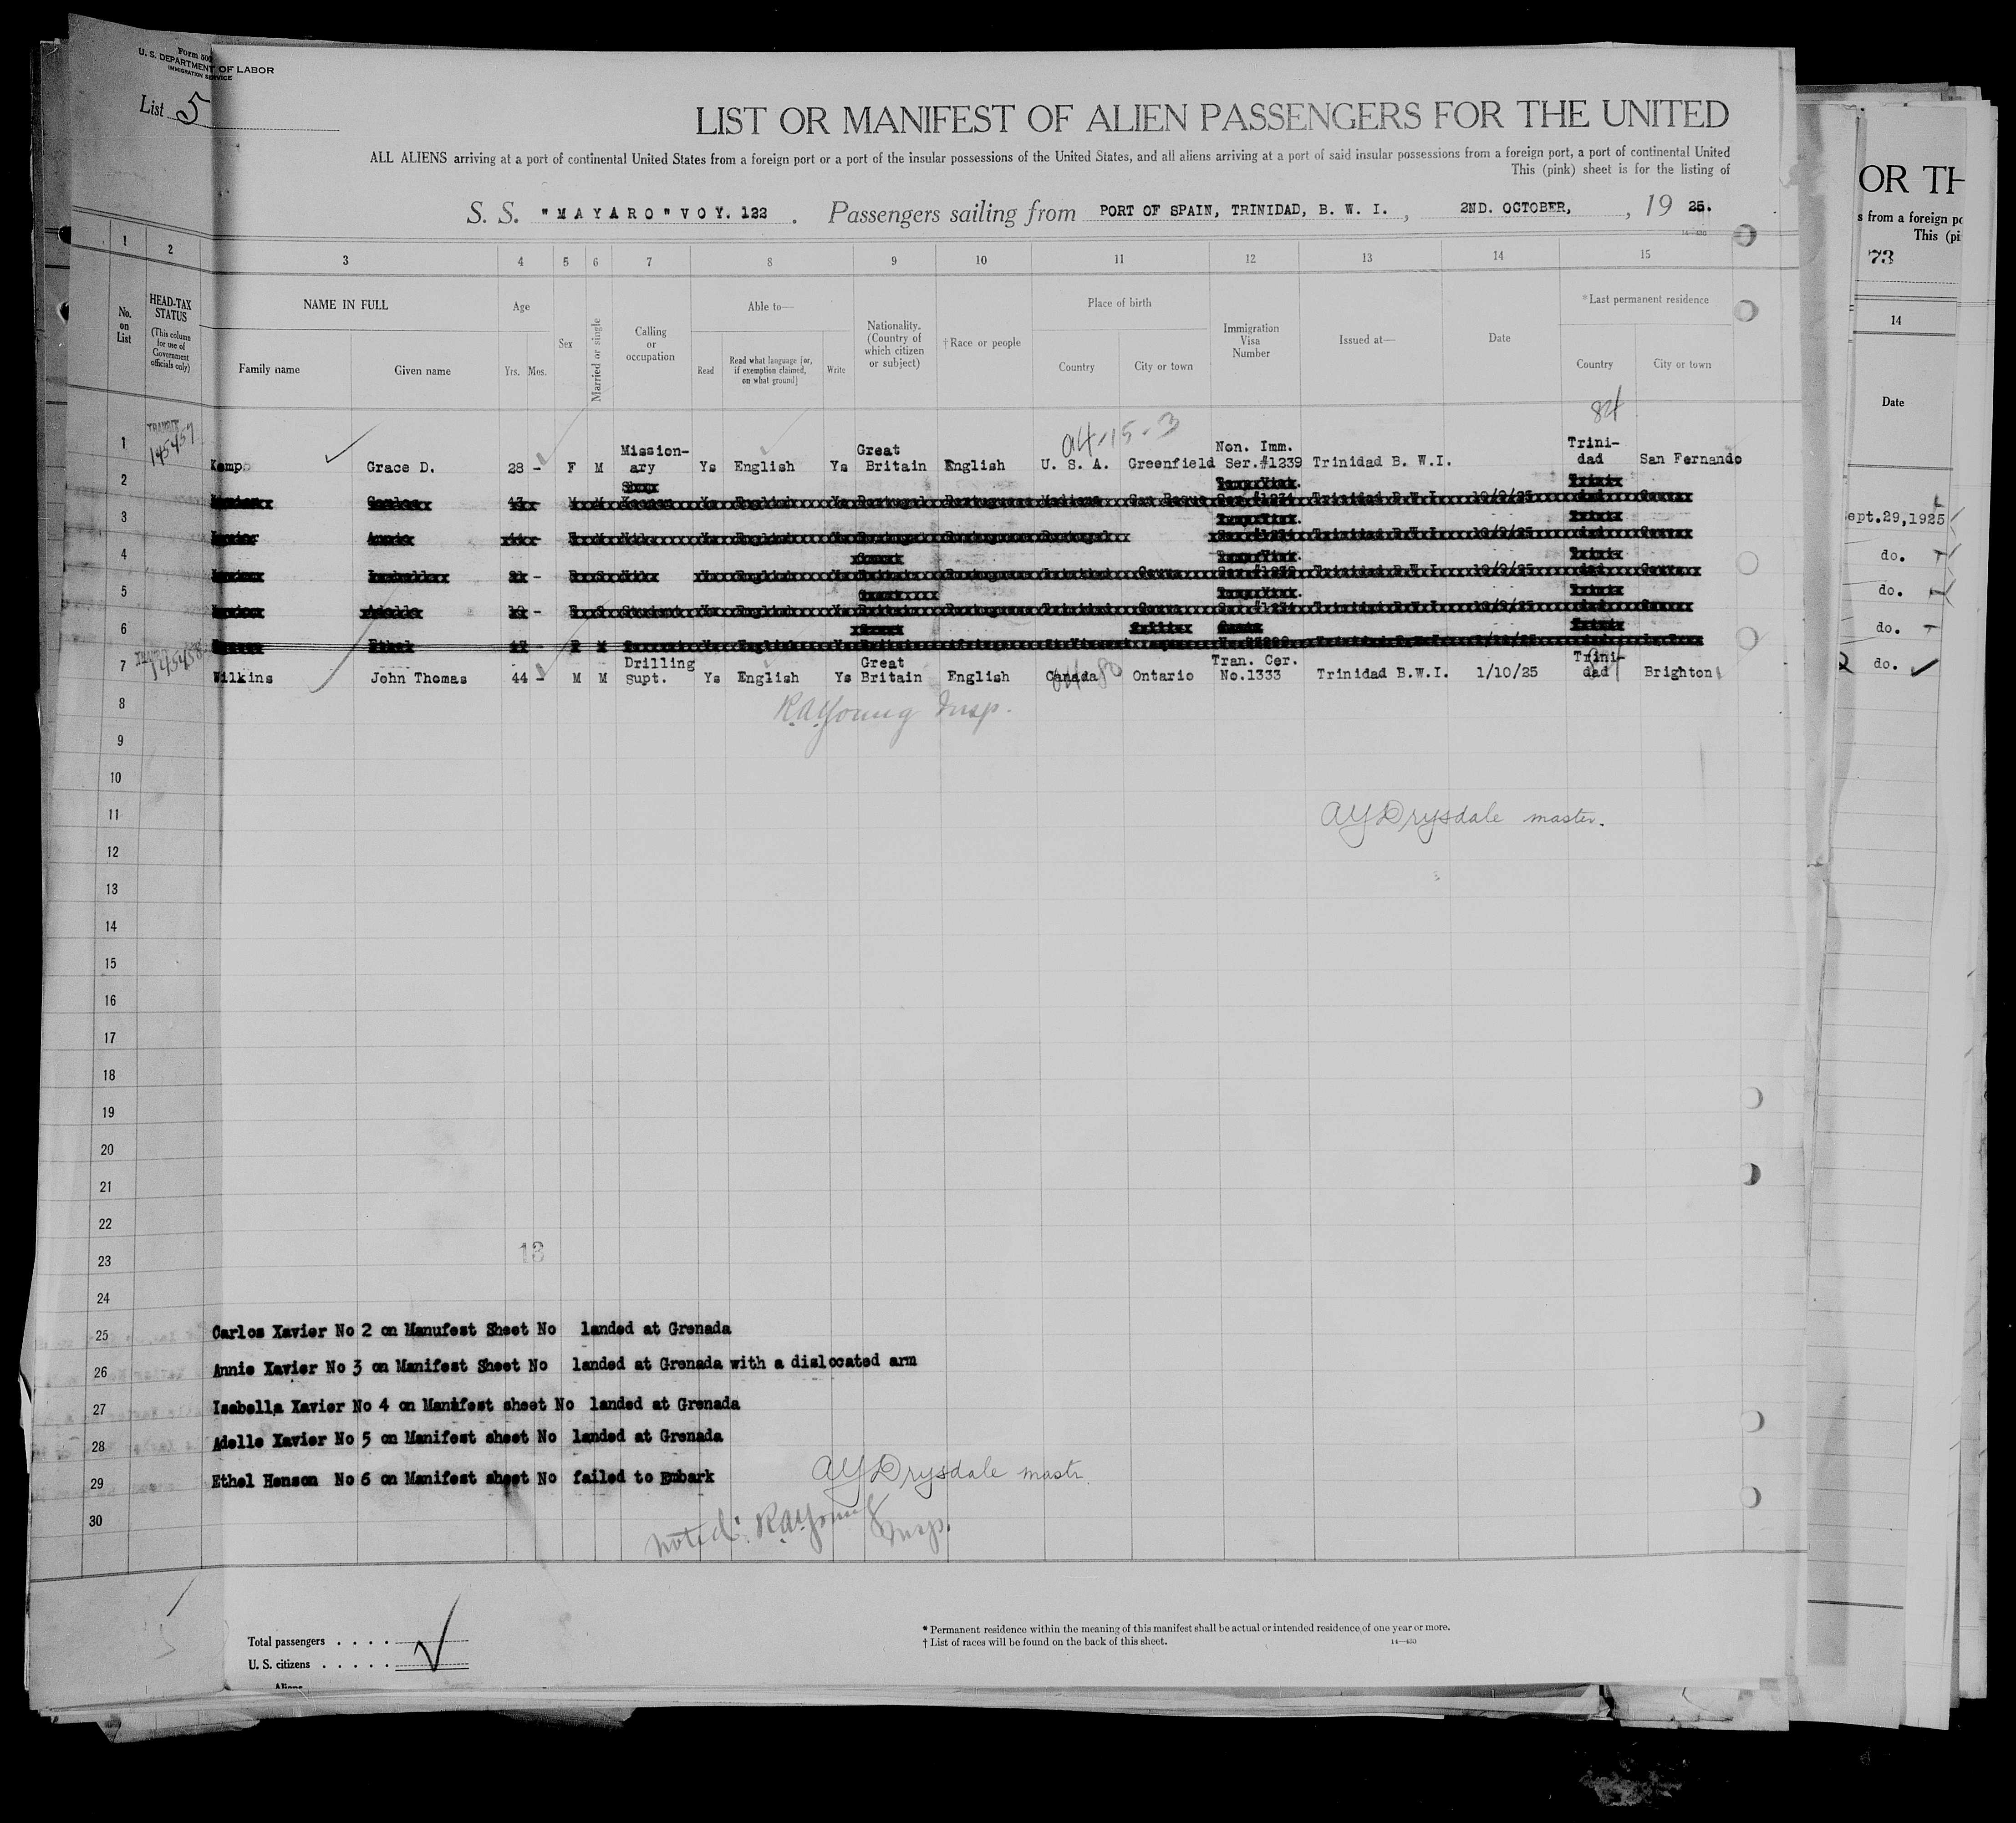 Form 500
U. S. DEPARTMENT OF LABOR
IMMIGRATION SERVICE
List 5
LIST OR MANIFEST OF ALIEN PASSENGERS FOR THE UNITED
ALL ALIENS arriving at a port of continental United States from a foreign port or a port of the insular possessions of the United States, and all aliens arriving at a port of said insular possessions from a foreign port, a port of continental United
This (pink) sheet is for the listing of
S. S. "MAYARO" VOY. 122 . Passengers sailing from PORT OF SPAIN, TRINIDAD, B. W. I. , 2ND. OCTOBER, , 19 25.
14—430
1 2 3 4 5 6 7 8 9 10 11 12 13 14 15
No. on List
HEAD-TAX STATUS
(This column for use of Government officials only)
NAME IN FULL
Family name Given name
Age
Yrs. Mos.
Sex
Married or single
Calling or occupation
Able to—
Read
Read what language [or, if exemption claimed, on what ground]
Write
Nationality. (Country of which citizen or subject)
†Race or people
Place of birth
Country City or town
Immigration Visa Number
Issued at—
Date
*Last permanent residence
Country City or town
84
1 TRANSIT 145457 Kemp Grace D. 28 - F M Mission-ary Ys English Ys Great Britain English U. S. A. Greenfield Non. Imm. Ser.#1239 Trinidad B. W.I. Trini-dad San Fernando
04-15-3
2
3
4
5
6
7 TRANSIT 145458 Wilkins John Thomas 44 - M M Drilling Supt. Ys English Ys Great Britain English Canada Ontario Tran. Cer. No.1333 Trinidad B.W.I. 1/10/25 Trini-dad Brighton
8 R.A.Young Insp.
9
10
11 AYDrysdale master.
12
13
14
15
16
17
18
19
20
21
22
23
13
24
25 Carlos Xavier No 2 on Manufest Sheet No landed at Grenada
26 Annie Xavier No 3 on Manifest Sheet No landed at Grenada with a dislocated arm
27 Isabella Xavier No 4 on Manifest sheet No landed at Grenada
28 Adelle Xavier No 5 on Manifest sheet No landed at Grenada
29 Ethel Henson No 6 on Manifest sheet No failed to Embark
AYDrysdale mastr.
30
Noted: RAYoung Insp.
Total passengers . . . .
U. S. citizens . . . . .
Aliens
* Permanent residence within the meaning of this manifest shall be actual or intended residence of one year or more.
† List of races will be found on the back of this sheet.
14—430
OR TH
s from a foreign po
This (pi
73
14
Date
ept.29,1925
do.
do.
do.
do.